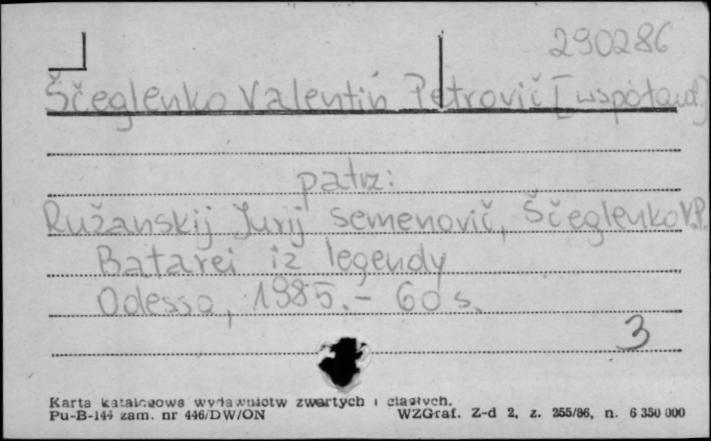 290286
Ščeglenko Valentin Petrovič [współaut.]
patrz:
Ružanskij Jurij Semenovič, Ščeglenko V.P.
Batarei iz legendy
Odessa, 1985. - 60 s.
3
Karta katalogowa wydawnictw zwartych i ciągłych.
Pu-B-144 zam. nr 446/DW/ON WZGraf. Z-d 2, z. 255/86, n. 6 350 000